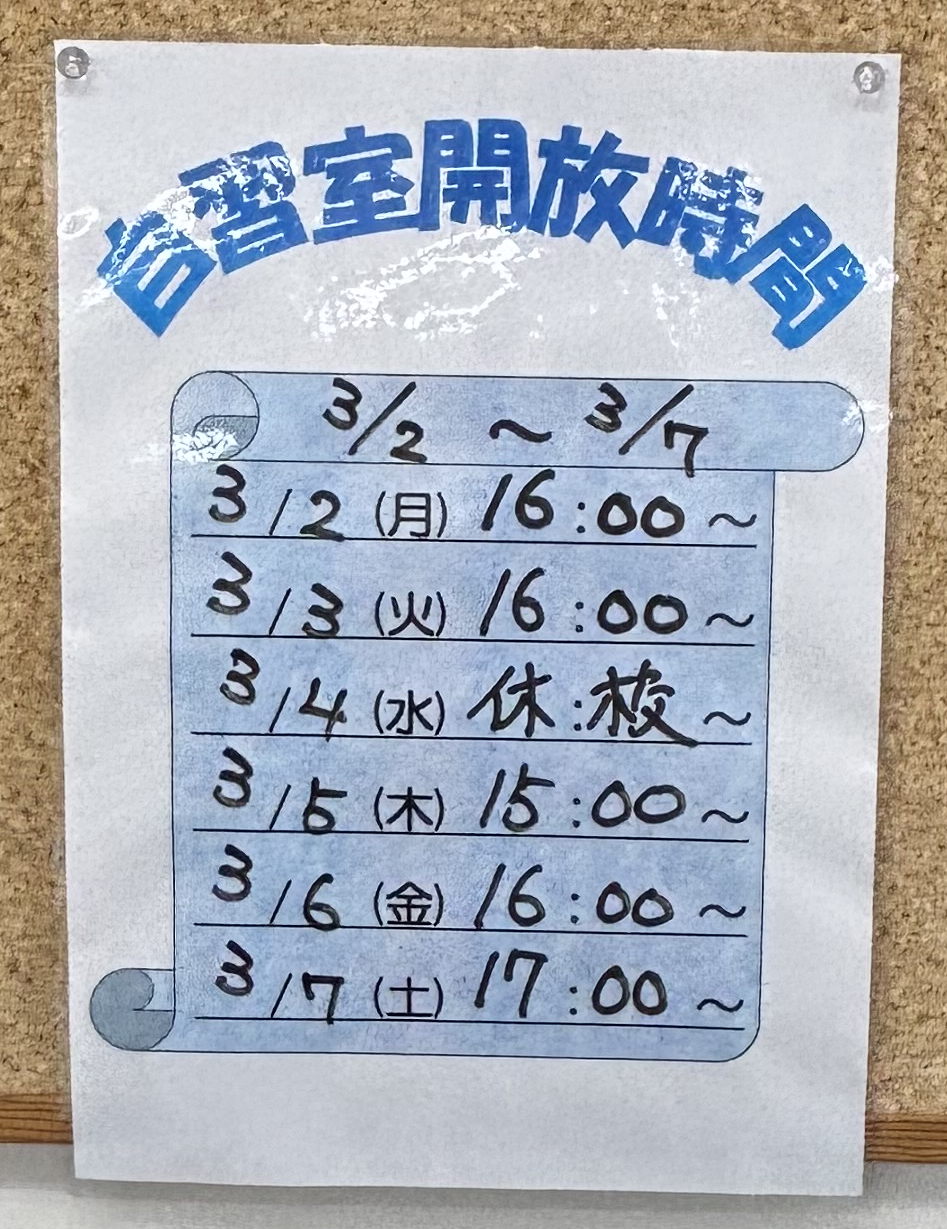 自習室開放時間
3/2 ～ 3/7
3/2(月) 16:00～
3/3(火) 16:00～
3/4(水) 休:校～
3/5(木) 15:00～
3/6(金) 16:00～
3/7(土) 17:00～